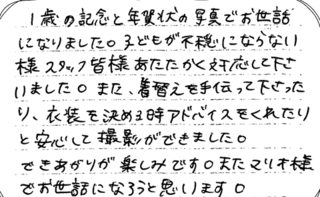 1歳の記念と年賀状の写真でお世話
になりました。子どもが不穏にならない
様スタッフ皆様あたたかく対応して下さ
いました。また、着替えを手伝って下さった
り、衣装を決める時アドバイスをくれたり
と安心して撮影ができました。
できあがりが楽しみです。またマリオ様
でお世話になろうと思います。